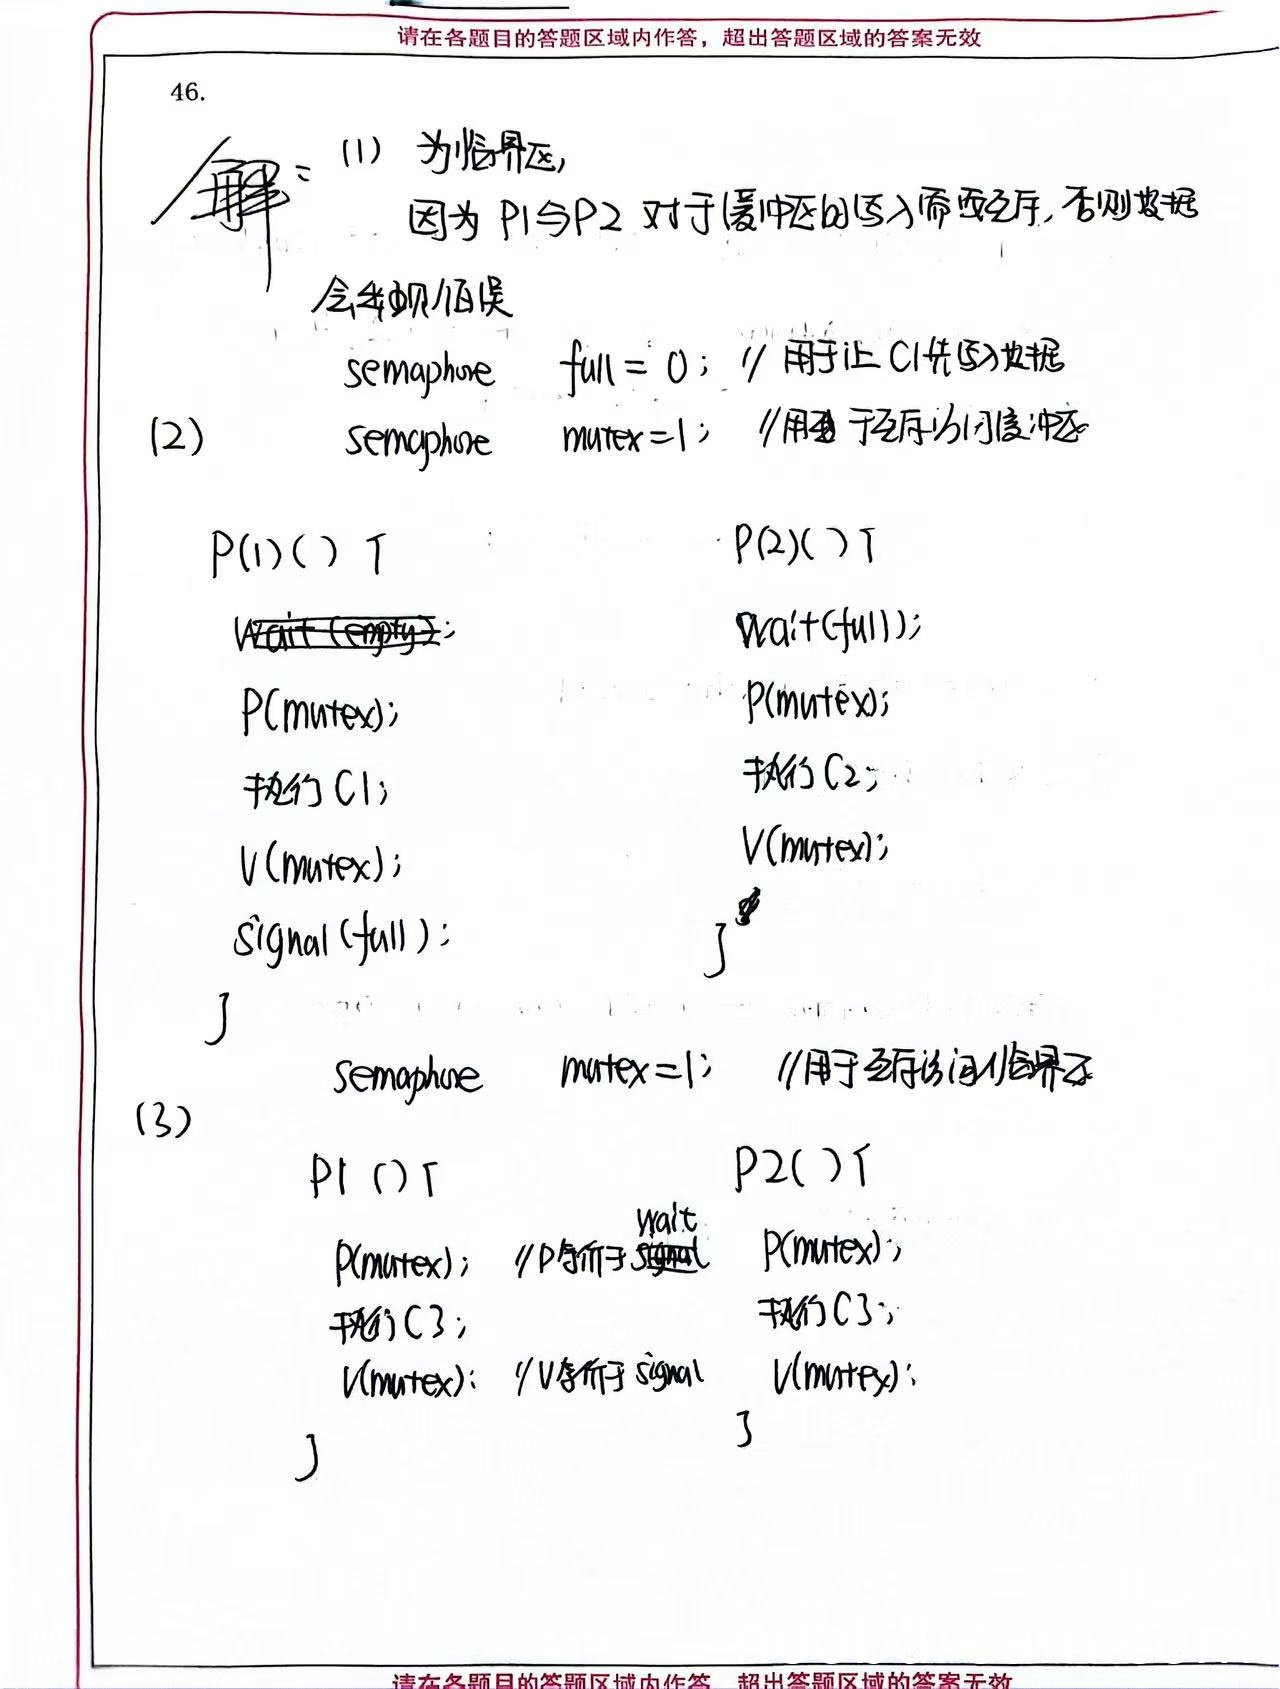 请在各题目的答题区域内作答，超出答题区域的答案无效
46.
解： (1) 为临界区，
因为 P1与P2 对于缓冲区的写入需要互斥，否则数据
会出现错误
semaphore full = 0； // 用于让 C1先写入数据
(2) semaphore mutex=1； //用于互斥访问缓冲区
P(1)( ) {
P(mutex)；
执行 C1；
V(mutex)；
signal(full)；
}
P(2)( ) {
wait(full)；
P(mutex)；
执行 C2；
V(mutex)；
}
semaphore mutex=1； //用于互斥访问临界区
(3)
P1 ( ) {
P(mutex)； //P等价于 wait
执行C3；
V(mutex)； //V等价于 signal
}
P2( ) {
P(mutex)；
执行C3；
V(mutex)；
}
请在各题目的答题区域内作答，超出答题区域的答案无效